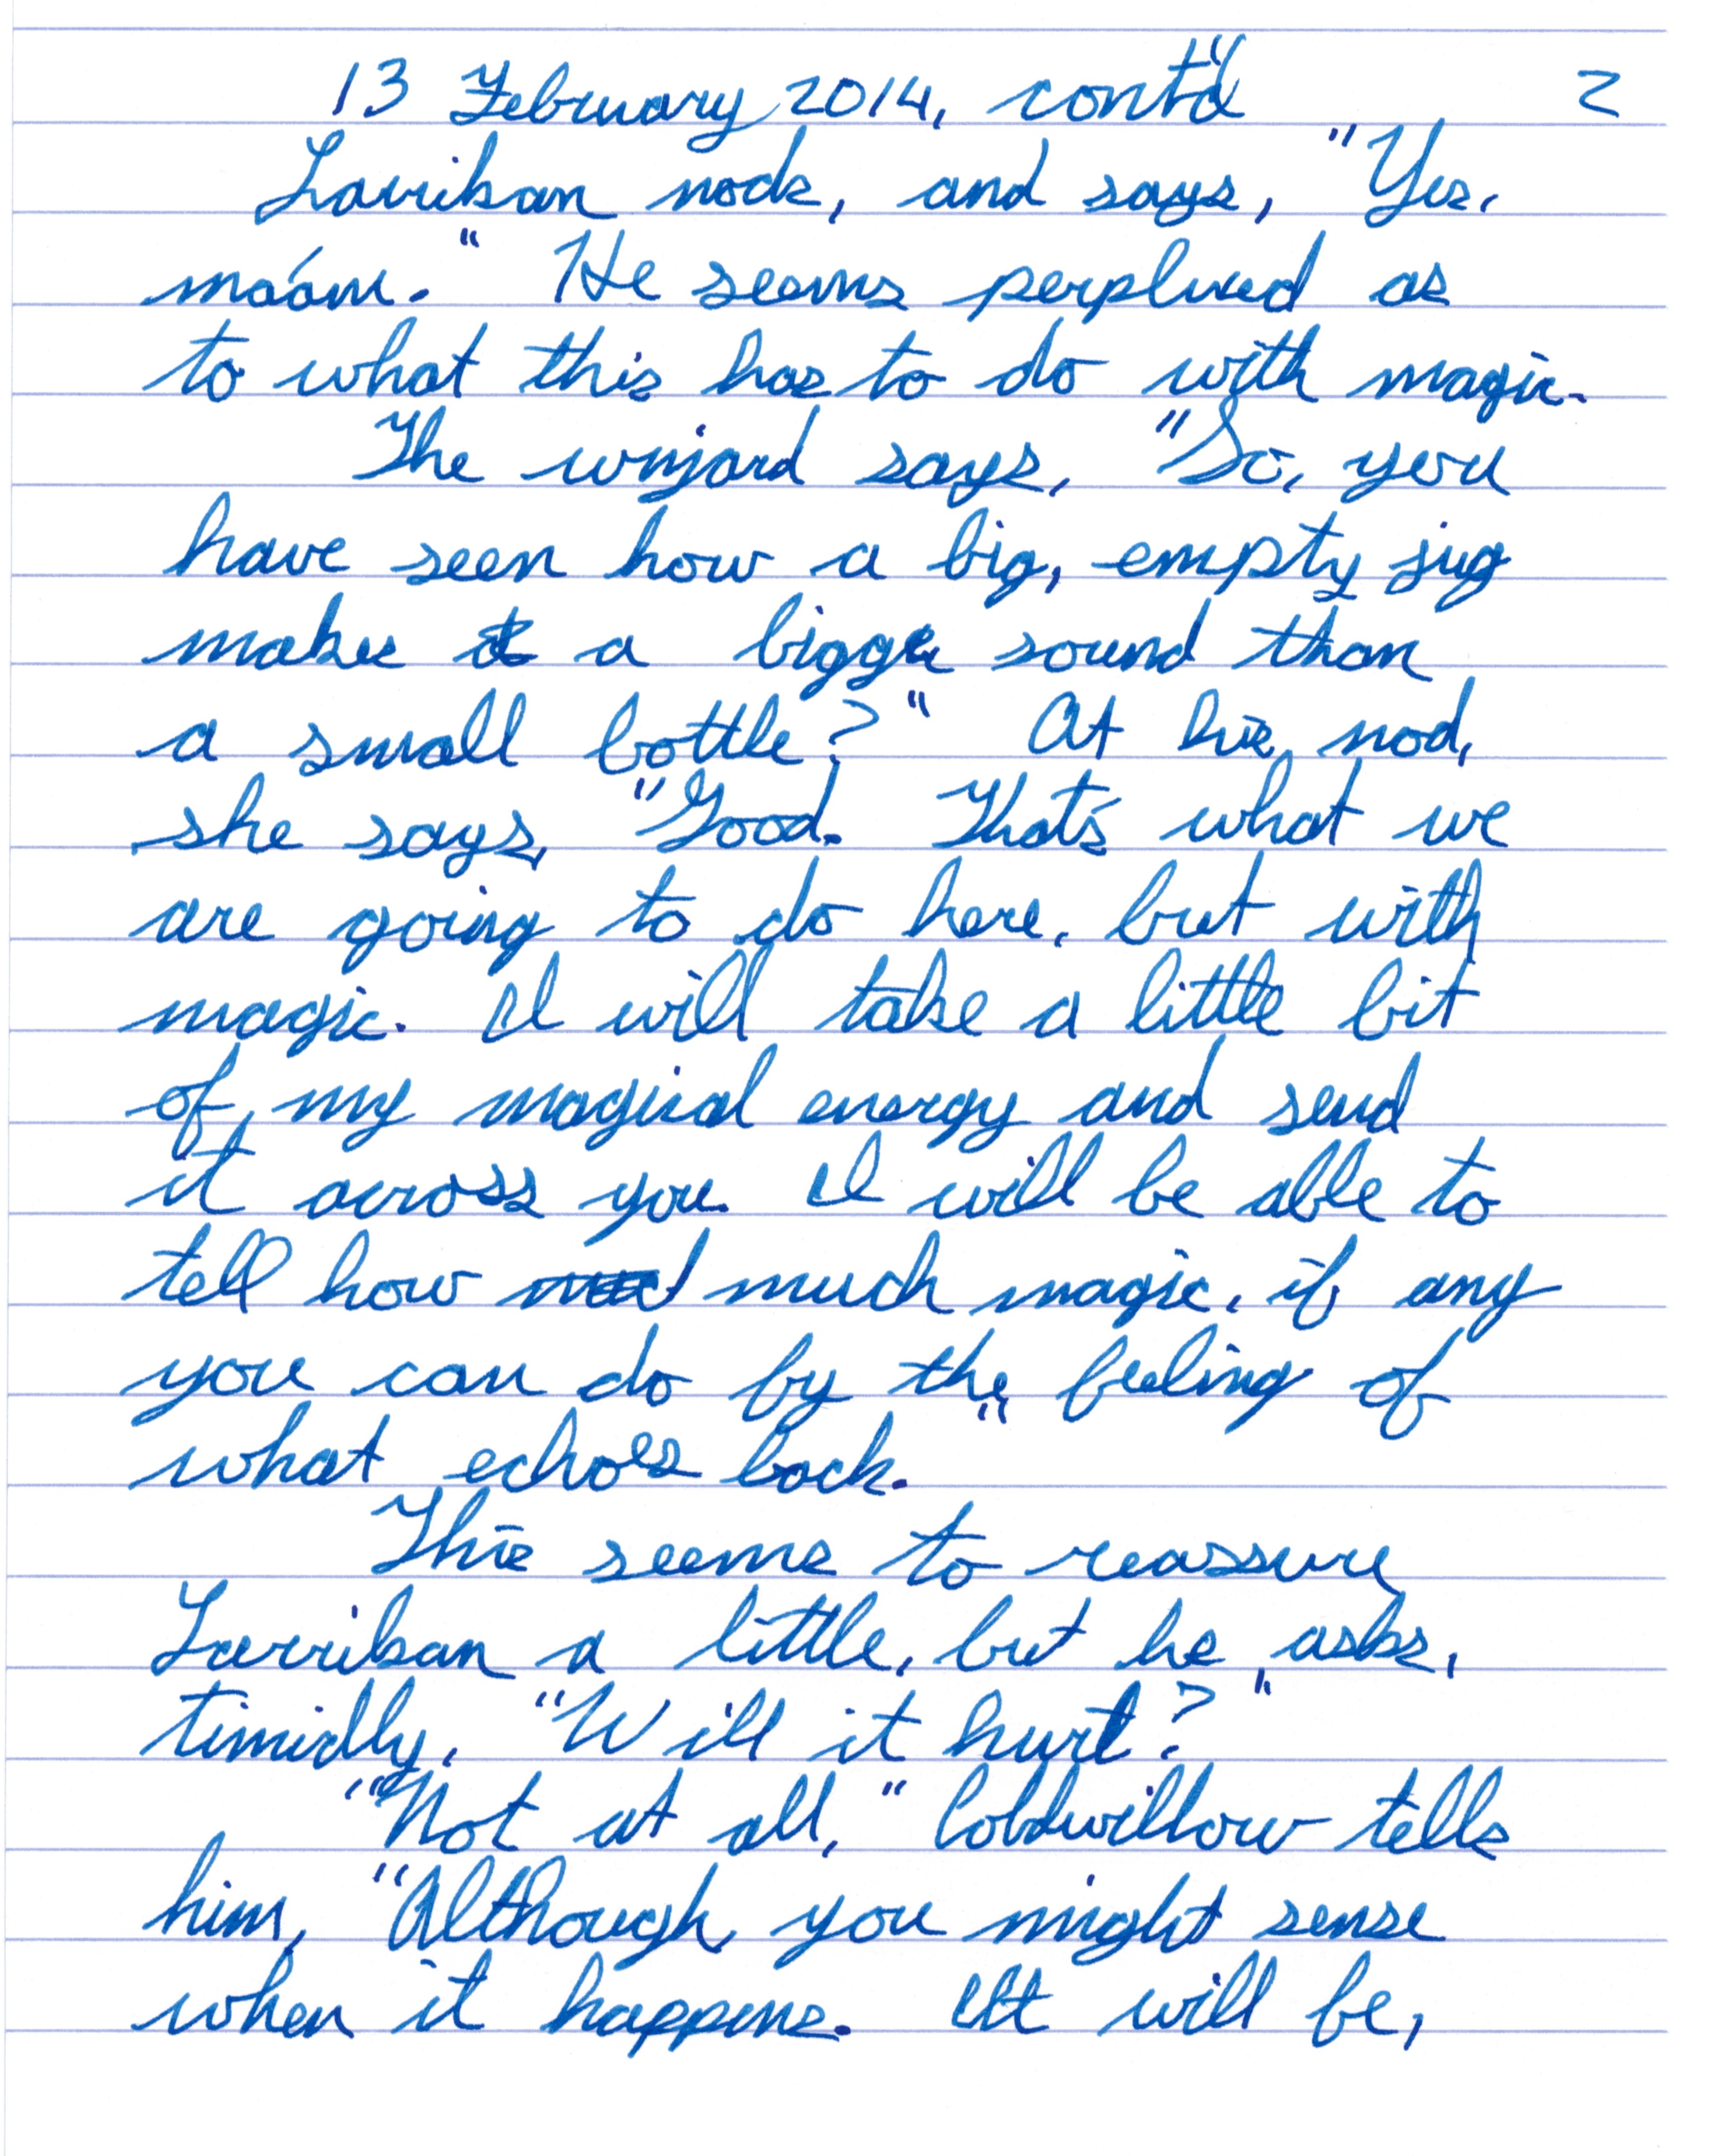 13 February 2014, cont'd 2
Larrikan nods, and says, "Yes,
ma'am." He seems perplexed as
to what this has to do with magic.
The wizard says, "So, you
have seen how a big, empty jug
makes a bigger sound than
a small bottle?" At his nod,
she says, "Good. That's what we
are going to do here, but with
magic. I will take a little bit
of my magical energy and send
it across you. I will be able to
tell how much magic, if any
you can do by the feeling of
what echoes back."
This seems to reassure
Larrikan a little, but he asks,
timidly, "Will it hurt?"
"Not at all," Coldwillow tells
him, "Although you might sense
when it happens. It will be,